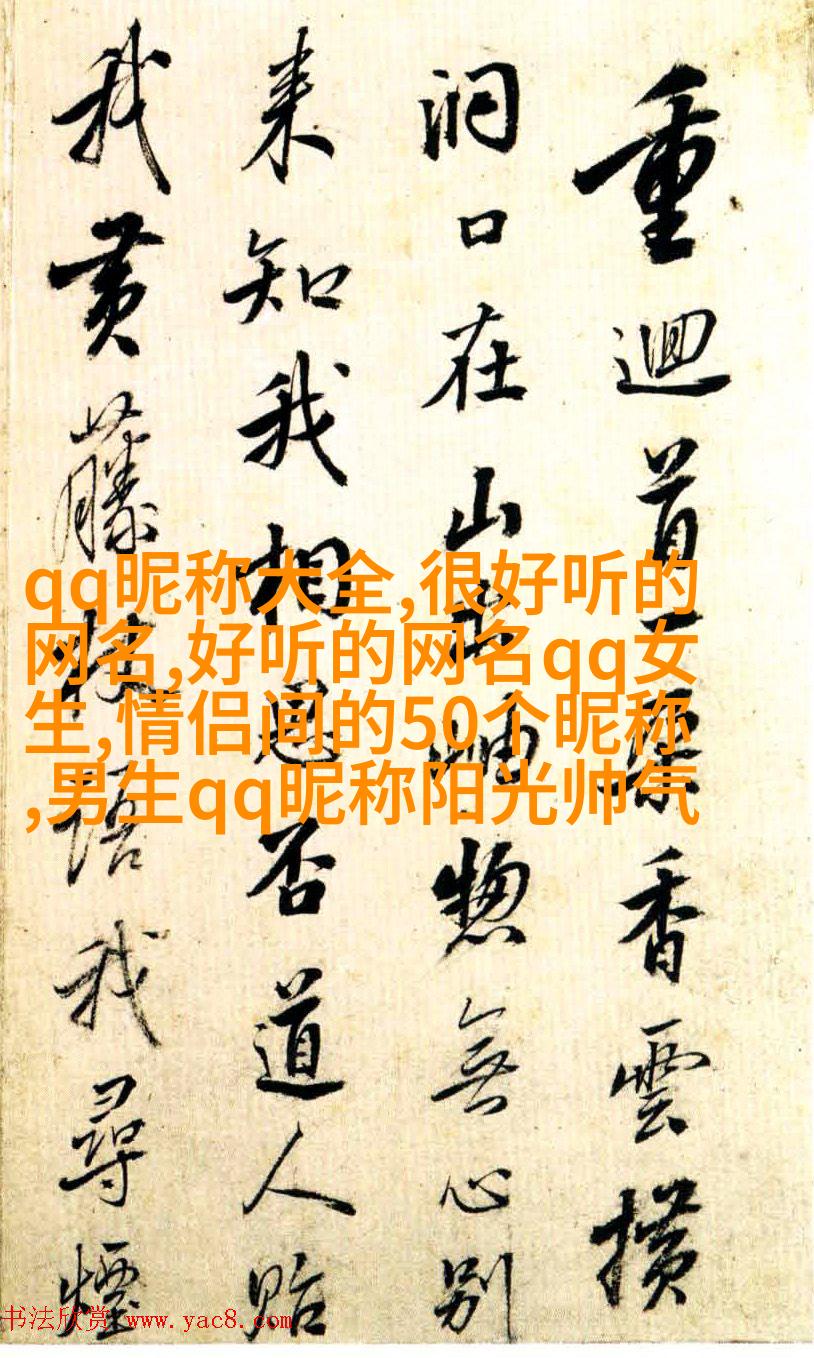 重迴首一香雲
洞口在山岫惣無心別
来知我相思否道人貽
我黄藤杖語我尋煙
qq昵称大全,很好听的
网名,好听的网名qq女
生,情侣间的50个昵称
,男生qq昵称阳光帅气
书法欣赏 www.yac8.com